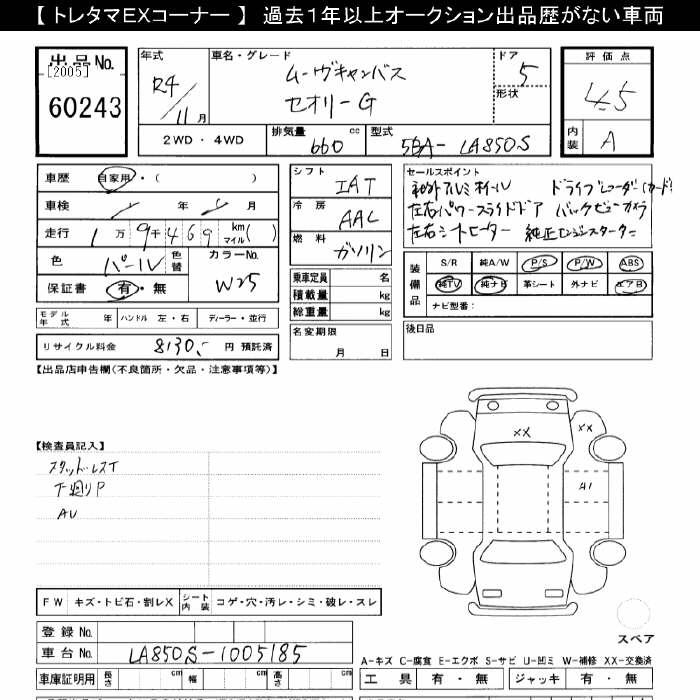 【 トレタマEXコーナー 】 過去1年以上オークション出品歴がない車両
出品 No.
[2005]
60243
年式
R4/11月
車名・グレード
ムーヴキャンバス
セオリーG
ドア
5
形状
2WD ・ 4WD
排気量 660 cc
型式 5BA- LA850S
評価点
4.5
内装 A
車歴 自家用・( )
車検 年 月
走行 1万9千469 km マイル( )
色 パール 色替
カラーNo. W25
保証書 有・無
シフト IAT
冷房 AAC
燃料 ガソリン
乗車定員 名
積載量 kg
総重量 kg
セールスポイント
社外アルミホイール ドライブレコーダー(カード)
左右パワースライドドア バックビューカメラ
左右シートヒーター 純正エンジンスターター
装備品
S/R 純A/W P/S P/W ABS
純TV 純ナビ 革シート 外ナビ エアB
ナビ型番:
モデル年式 年 ハンドル 左・右 ディーラー・並行
リサイクル料金 8130.- 円 預託済
名変期限
月 日
後日品
【出品店申告欄(不良箇所・欠品・注意事項等)】
【検査員記入】
スタッドレスT
下廻りP
AU
XX
XX
A1
スペア
FW キズ・トビ石・割レX シート内装 コゲ・穴・汚レ・シミ・破レ・スレ
登録 No.
車台 No. LA850S-1005185
A-キズ C-腐食 E-エクボ S-サビ U-凹ミ W-補修 XX-交換済
車庫証明用 長さ cm 幅 cm 高さ cm
工具 有・無 ジャッキ 有・無